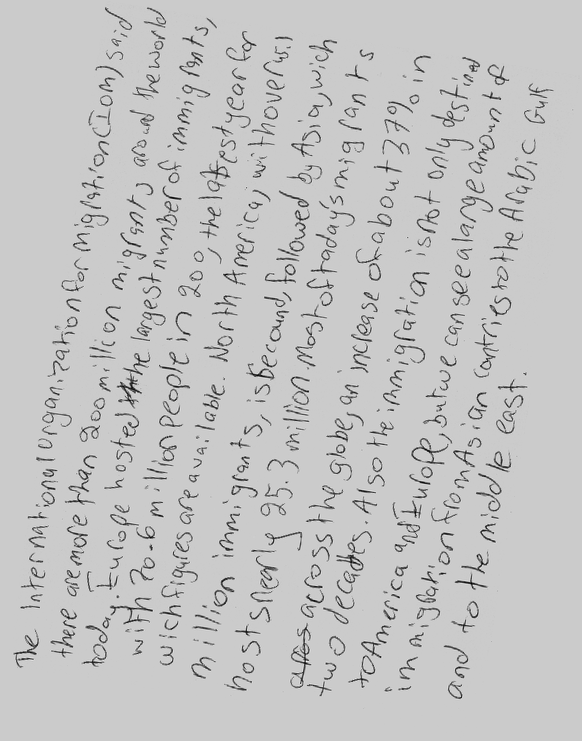 The International Organization for Migration (IOM) said
there are more than 200 million migrants around the world
today. Europe hosted the largest number of immigrants,
with 70.6 million people in 200, the latest year for
wich figures are available. North America, with over 45.1
million immigrants, is second, followed by Asia, wich
hosts nearly 25.3 million. Most of today's migrants
across the globe, an increase of about 37% in
two decades. Also the immigration is not only destined
to America and Europe, but we can see a large amount of
immigration from Asian contries to the Arabic Gulf
and to the middle east.